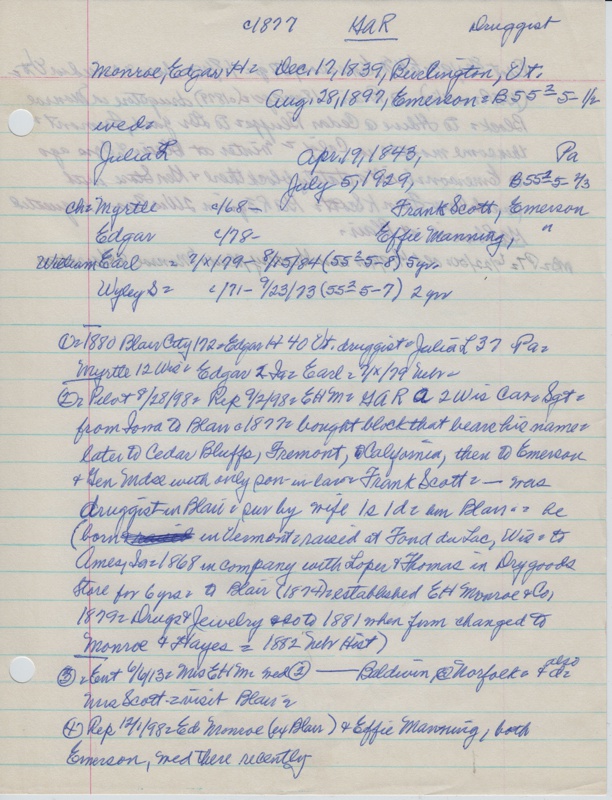 c1877 GAR Druggist
Monroe, Edgar H = Dec, 17, 1839, Burlington, Vt.
Aug, 28, 1897, Emerson = B 55²5-1/2
wed =
Julia L Apr. 19, 1843, Pa
July 5, 1929, B 55²5-7/3
ch = Myrtle c/68- Frank Scott, Emerson
Edgar c/78- Effie Manning, "
William Earl = 7/x/79 - 8/15/84 (55²5-8) 5 yr
Wyley S = c/71 - 9/23/73 (55²5-7) 2 yr
① = 1880 Blair City 172 = Edgar H 40 Vt. druggist = Julia L 37 Pa =
Myrtle 12 Wis = Edgar 2 Ia = Earl = 7/x/79 Nebr =
② = Pilot 8/28/98 = Rep 9/2/98 = EHM = GAR A 2 Wis Cav = Sgt =
from Iowa to Blair c1877 = bought block that bears his name =
later to Cedar Bluffs, Fremont, California, then to Emerson
& Gen Mdse with only son-in-law = Frank Scott = - was
druggist in Blair = sur by wife 1s 1d = am Blair = = he
(born in Vermont = raised at Fond du Lac, Wis = to
Ames, Ia = 1868 in company with Loper & Thomas in Drygoods
Store for 6 yrs = to Blair (1874) = established EH Monroe & Co,
1879 = Drugs & Jewelry to 1881 when firm changed to
Monroe & Hayes = 1882 Nebr Hist)
③ = Ent 6/6/13 = Mrs EHM wed ② — Baldwin, Norfolk = & d = also
Mrs Scott = visit Blair =
④ Rep 12/1/98 = Ed Monroe (ex Blair) & Effie Manning, both
Emerson, wed there recently